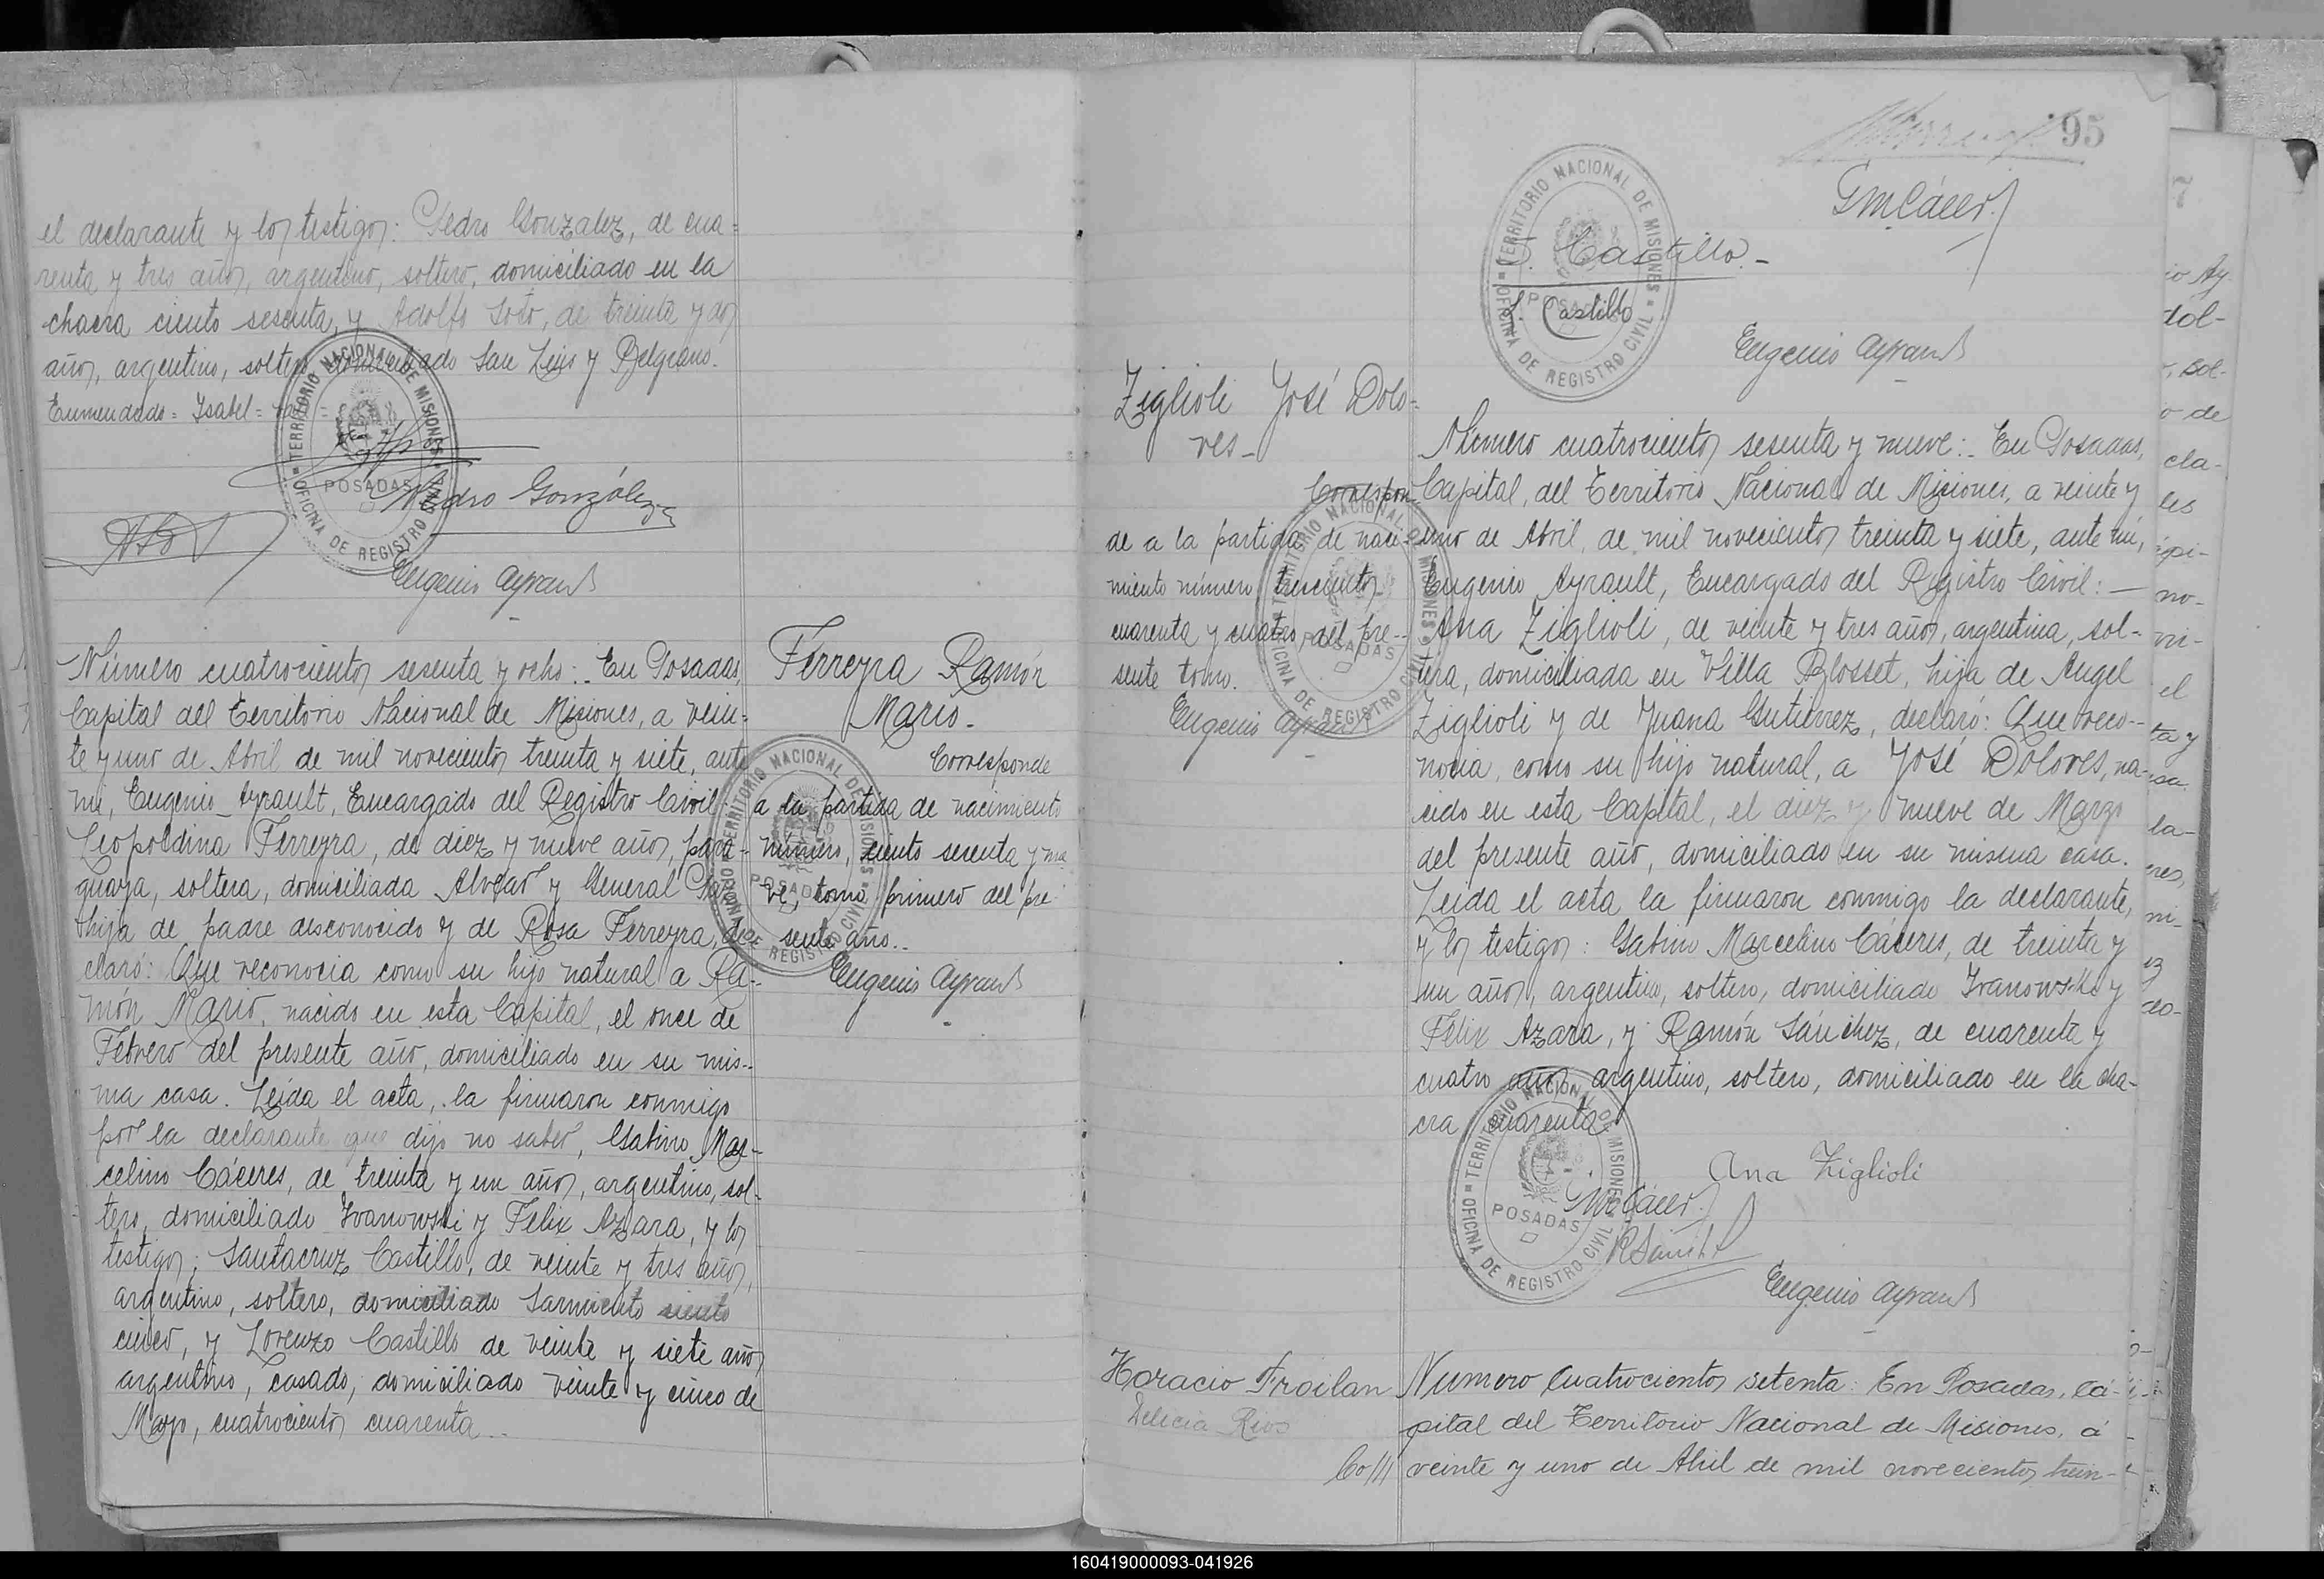 el declarante y los testigos: Pedro Gonzalez, de cua=
renta y tres años, argentino, soltero, domiciliado en la
chacra ciento sesenta, y Adolfo Soto, de treinta y dos
años, argentino, soltero, domiciliado San Luis y Belgrano.
Enmendado = Isabel =
TERRITORIO NACIONAL DE MISIONES
POSADAS
OFICINA DE REGISTRO CIVIL
Pedro González
Eugenio Ayrault
Número cuatrocientos sesenta y ocho:_ En Posadas,
Capital del Territorio Nacional de Misiones, a vein=
te y uno de Abril de mil novecientos treinta y siete, ante
mi, Eugenio Ayrault, Encargado del Registro Civil:
Leopoldina Ferreyra, de diez y nueve años, para-
guaya, soltera, domiciliada Alvear y General
hija de padre desconocido y de Rosa Ferreyra, de-
claró: Que reconocia como su hijo natural a Ra-
món Mario, nacido en esta Capital, el once de
Febrero del presente año, domiciliado en su mis-
ma casa. Leída el acta, la firmaron conmigo
por la declarante que dijo no saber, Gabino Mar-
celino Cáceres, de treinta y un años, argentino, sol-
tero, domiciliado Ivanowski y Felix Azara, y los
testigos; Santacruz Castillo, de veinte y tres años,
argentino, soltero, domiciliado Sarmiento siento
cinco, y Lorenzo Castillo de veinte y siete años
argentino, casado, domiciliado veinte y cinco de
Mayo, cuatrocientos cuarenta
Ferreyra Ramón
Mario-
Corresponde
a la partida de nacimiento
número, ciento sesenta y nue
ve, tomo primero del pre-
sente año..
Eugenio Ayrault
TERRITORIO NACIONAL DE MISIONES
POSADAS
OFICINA DE REGISTRO CIVIL
95
GmCácer
TERRITORIO NACIONAL DE MISIONES
POSADAS
OFICINA DE REGISTRO CIVIL
S. Castillo.-
L. Castillo
Eugenio Ayrault
Ziglioli José Dolo=
res-
Correspon-
de a la partida de naci-
miento número trescientos
cuarenta y cuatro, del pre-
sente tomo.
Eugenio Ayrault
TERRITORIO NACIONAL DE MISIONES
POSADAS
OFICINA DE REGISTRO CIVIL
Número cuatrocientos sesenta y nueve:_ En Posadas,
Capital, del Territorio Nacional de Misiones, a veinte y
uno de Abril, de mil novecientos treinta y siete, ante mi,
Eugenio Ayrault, Encargado del Registro Civil: —
Ana Ziglioli, de veinte y tres años, argentina, sol-
tera, domiciliada en Villa Blosset, hija de Angel
Ziglioli y de Juana Gutierrez, declaró: Que reco-
nocia, como su hijo natural, a José Dolores, na-
cido en esta Capital, el diez y nueve de Marzo
del presente año, domiciliado en su misma casa.
Leida el acta la firmaron conmigo la declarante,
y los testigos: Gabino Marcelino Cáceres, de treinta y
un años, argentino, soltero, domiciliado Ivanowski y
Felix Azara, y Ramón Sánchez, de cuarenta y
cuatro años, argentino, soltero, domiciliado en la cha-
cra cuarenta
Ana Ziglioli
GmCácer
TERRITORIO NACIONAL DE MISIONES
POSADAS
OFICINA DE REGISTRO CIVIL
Eugenio Ayrault
Horacio Froilan
Delicia Rios
Co///
Numero cuatrocientos setenta: En Posadas, ca-
pital del Territorio Nacional de Misiones, á
veinte y uno de Abril de mil novecientos trein-
7
160419000093-041926